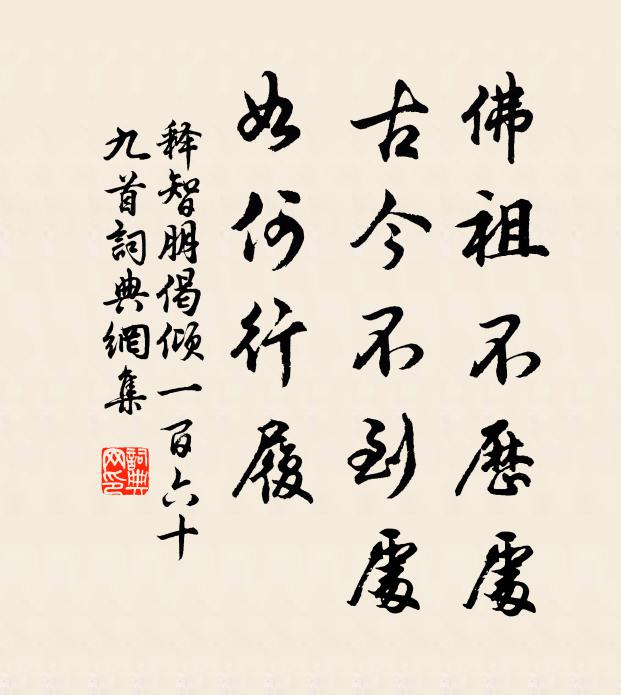 佛祖不歷處
古今不到處
如何行履
释智朋偈傾一百六十
九首詞典網集
詞典网印